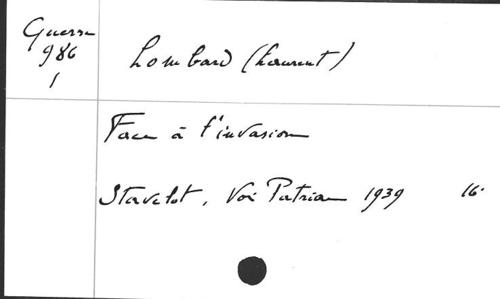 Guerre
986
1
Lombard (Laurent)
Face à l'invasion
Stavelot, Vox Patriae 1939 16°